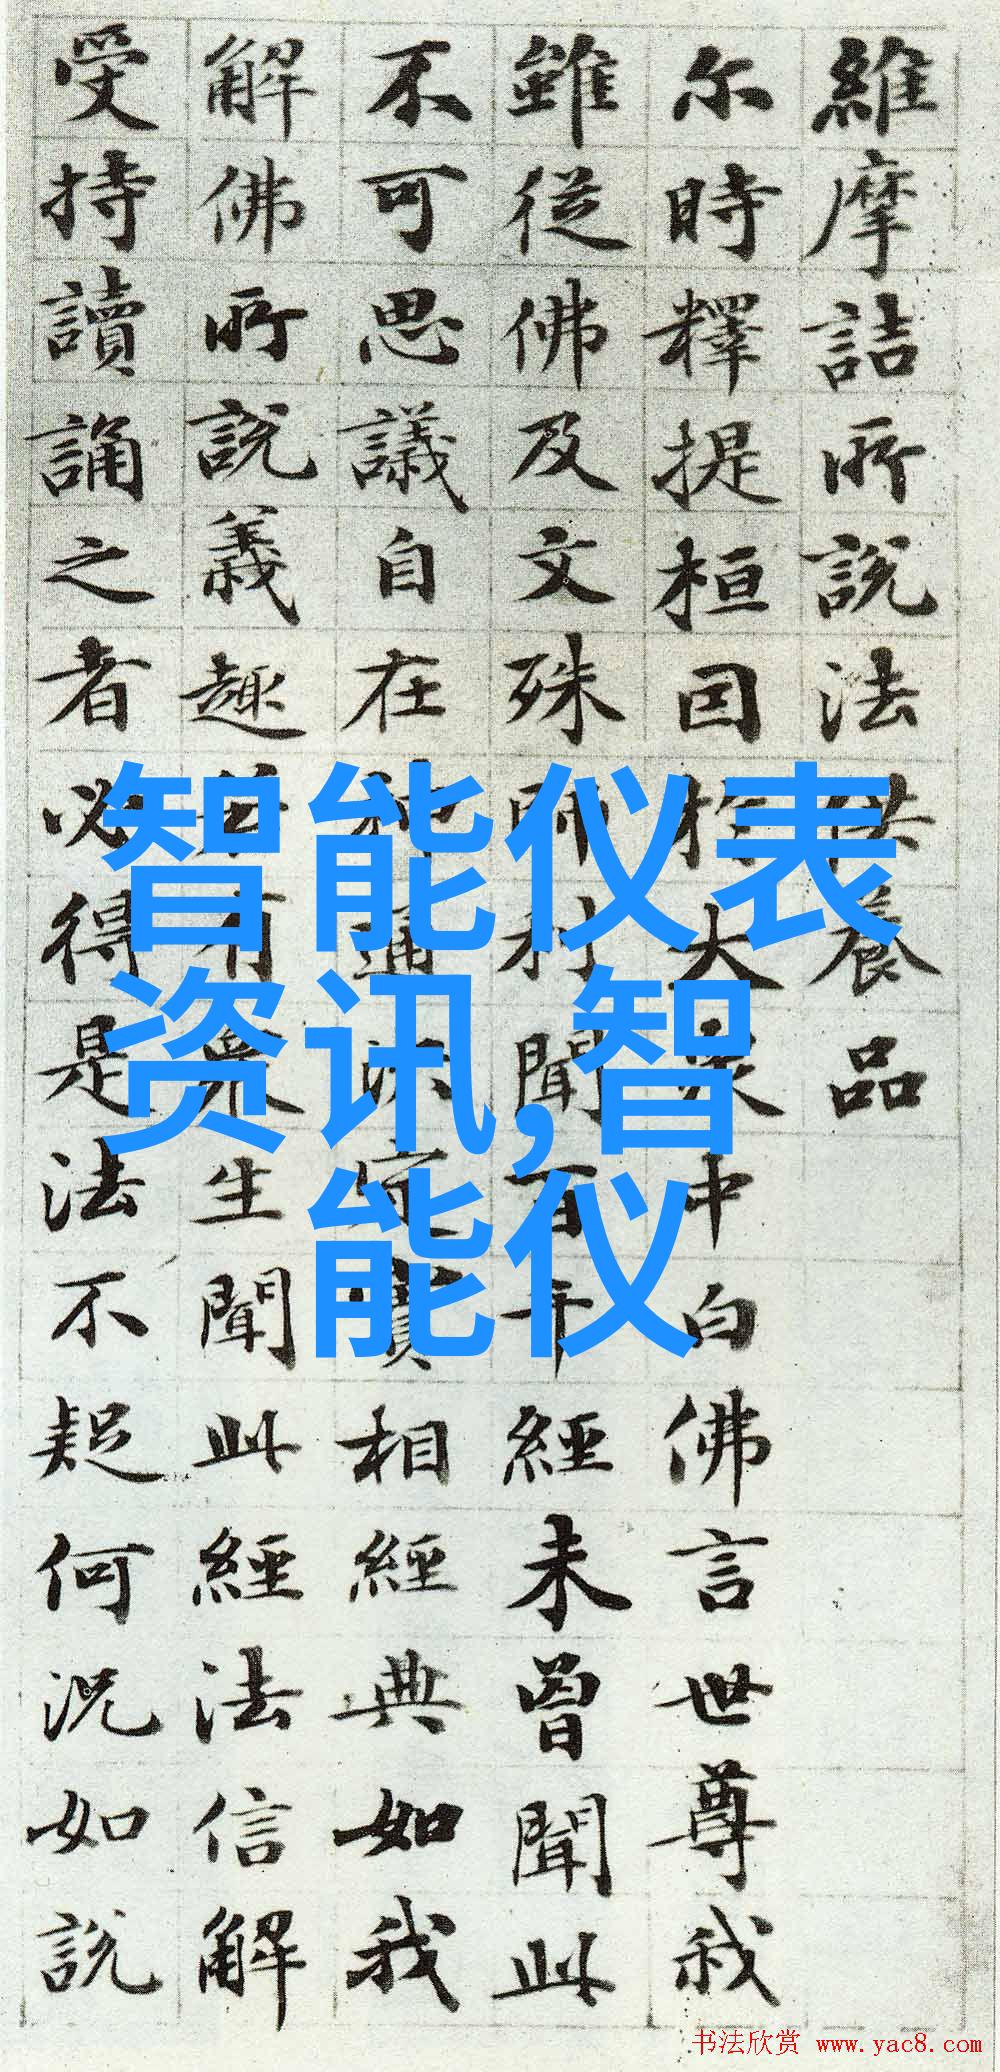 維摩詰所說法供養品
尔時釋提桓因於大衆中白佛言世尊我
雖從佛及文殊師利聞百千經未曾聞此
不可思議自在神通决定實相經典如我
解佛所說義趣若有衆生聞此經法信解
受持讀誦之者必得是法不疑何況如說
智能仪表
资讯,智
能仪
书法欣赏 www.yac8.com